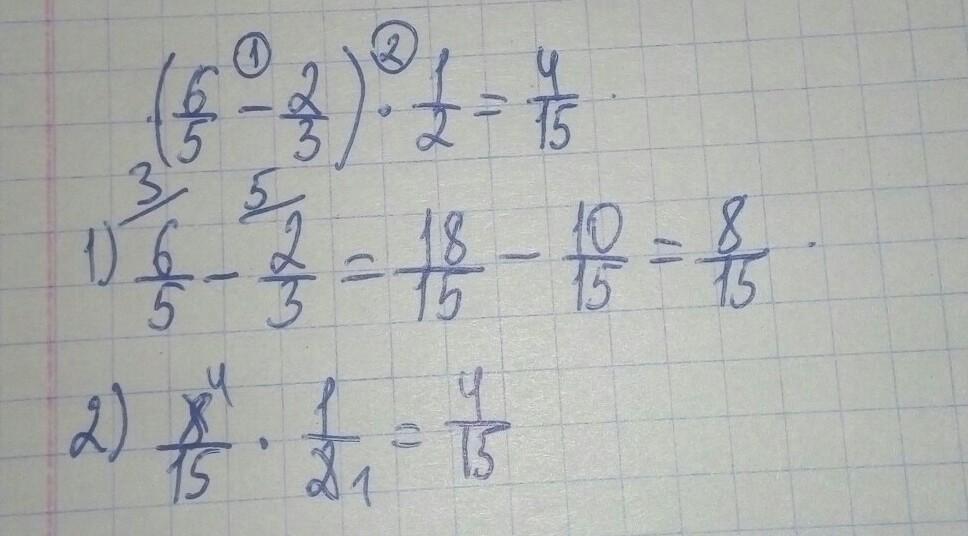 (6/5 - 2/3) ① ② · 1/2 = 4/15
3/ 5/
1) 6/5 - 2/3 = 18/15 - 10/15 = 8/15
2) 8/15 4 · 1/2 1 = 4/15